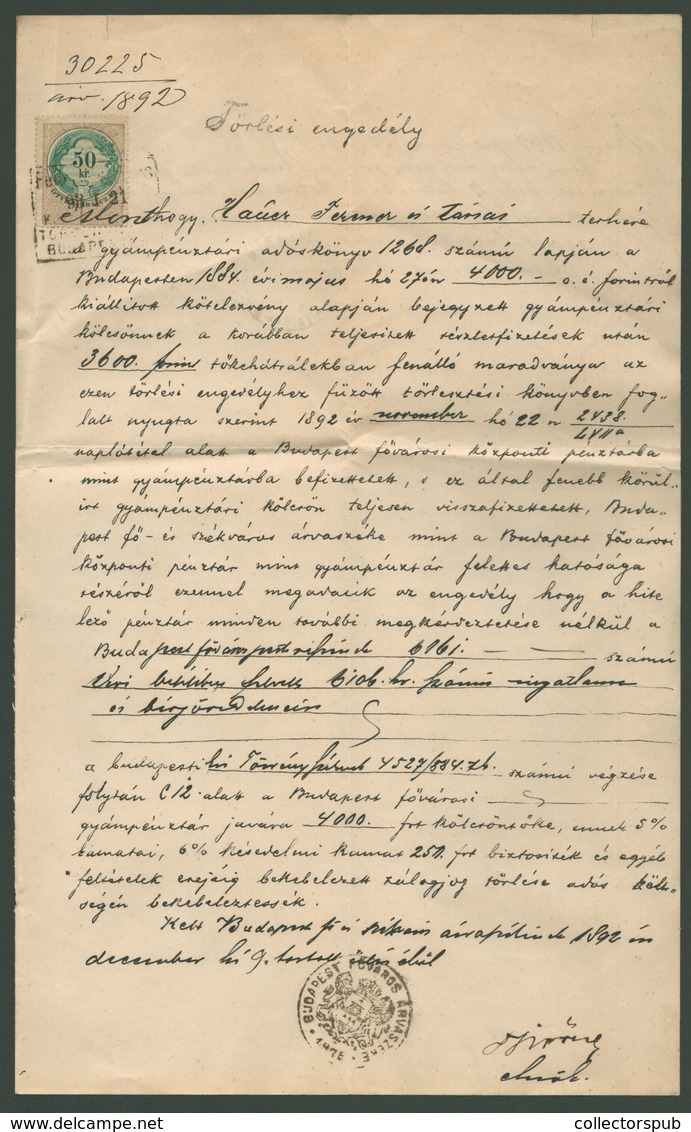 30225
árv. 1892
Törlési engedély
50
kr.
21
BUDAPE
Mint hogy, Hauer Ferencz és társai terhére
gyámpénztári adóskönyv 1268. számú lapján a
Budapesten 1884. évi május hó 27én 4000.- o. é. forintról
kiállított kötelezvény alapján bejegyzett gyámpénztári
kölcsönnek a korábban teljesített részletfizetések után
3600. forint tőkehátrálékban fenálló maradványa az
ezen törlési engedélyhez fűzött törlesztési könyvben fog„
lalt nyugta szerint 1892 év november hó 22 n 2438.
naplótétel alatt a Budapest fővárosi központi pénztárba
mint gyámpénztárba befizettetett, s ez által fenebb körül„
irt gyámpénztári kölcsön teljesen visszafizettetett, Buda„
pest fő- és székváros árvaszéke mint a Budapest fővárosi
központi pénztár mint gyámpénztár felettes hatósága
részéről ezennel megadatik az engedély hogy a hite
lező pénztár minden további megkérdeztetése nélkül a
Budapest fővárosi 6161. számú
betétben 6106. hr. számú ingatlanra
és
a budapesti kir Törvényszéknek 4527/884. tk. számú végzése
folytán C 12. alatt a Budapest fővárosi
gyámpénztár javára 4000. frt kölcsöntőke, ennek 5%
kamatai, 6% késedelmi kamat 250. frt biztosíték és egyéb
feltételek erejéig bekebelezett zálogjog törlése adós költ„
ségén bekebeleztessék.
Kelt Budapest fő és székváros árvaszékének 1892 év
december hó 9. tartott üléséből
BUDAPEST FŐVÁROS ÁRVASZÉKE
elnök.
collectorspub